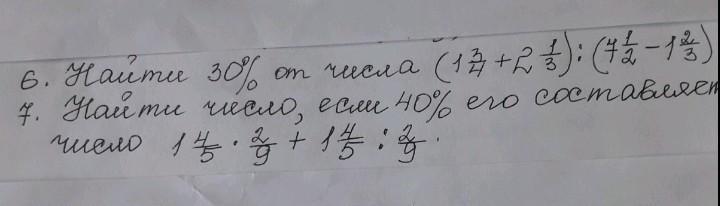 6. Найти 30% от числа (1 3/4 + 2 1/3) : (7 1/2 - 1 2/3)
7. Найти число, если 40% его составляет
число 1 4/5 · 2/9 + 1 4/5 : 2/9.